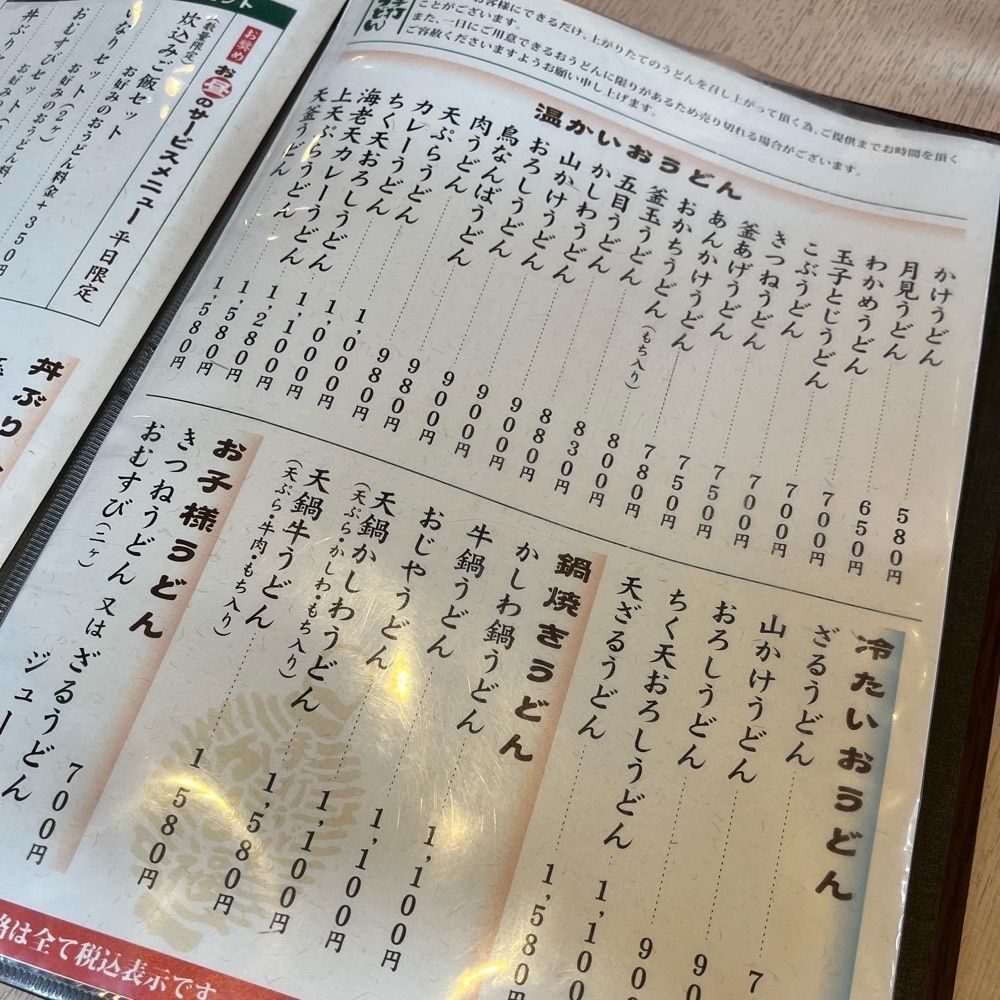 お客様にできるだけ、上がりたてのうどんを召し上がって頂く為、ご提供までお時間を頂く
ことがございます。
また、一日にご用意できるおうどんに限りがあるため売り切れる場合がございます。
ご容赦くださいますようお願い申し上げます。
温かいおうどん
かけうどん 580円
月見うどん 650円
わかめうどん 700円
玉子とじうどん 700円
こぶうどん 700円
きつねうどん 750円
釜あげうどん 750円
あんかけうどん 780円
おかちうどん(もち入り) 800円
釜玉うどん 830円
五目うどん 880円
かしわうどん 900円
山かけうどん 900円
おろしうどん 900円
鳥なんばうどん 980円
肉なんばうどん 980円
天ぷらうどん 1,000円
カレーうどん 1,000円
ちく天おろしうどん 1,100円
海老天カレーうどん 1,280円
上天ぷらうどん 1,580円
天釜うどん 1,580円
冷たいおうどん
ざるうどん 7
山かけうどん 9
おろしうどん 90
ちく天おろしうどん 1,100
天ざるうどん 1,580
鍋焼きうどん
かしわ鍋うどん 1,100円
牛鍋うどん 1,100円
おじやうどん 1,100円
天鍋かしわうどん 1,580円
(天ぷら・かしわ・もち入り)
天鍋牛うどん 1,580円
(天ぷら・牛肉・もち入り)
お子様うどん
きつねうどん 又は ざるうどん 700円
おむすび(二ヶ) ジュー
格は全て税込表示です
セット
お奨め お昼のサービスメニュー 平日限定
(数量限定)
炊込みご飯セット お好みのおうどん料金+350円
なりセット
おむすびセット(2ヶ)
お好みのおうどん料
丼ぶり